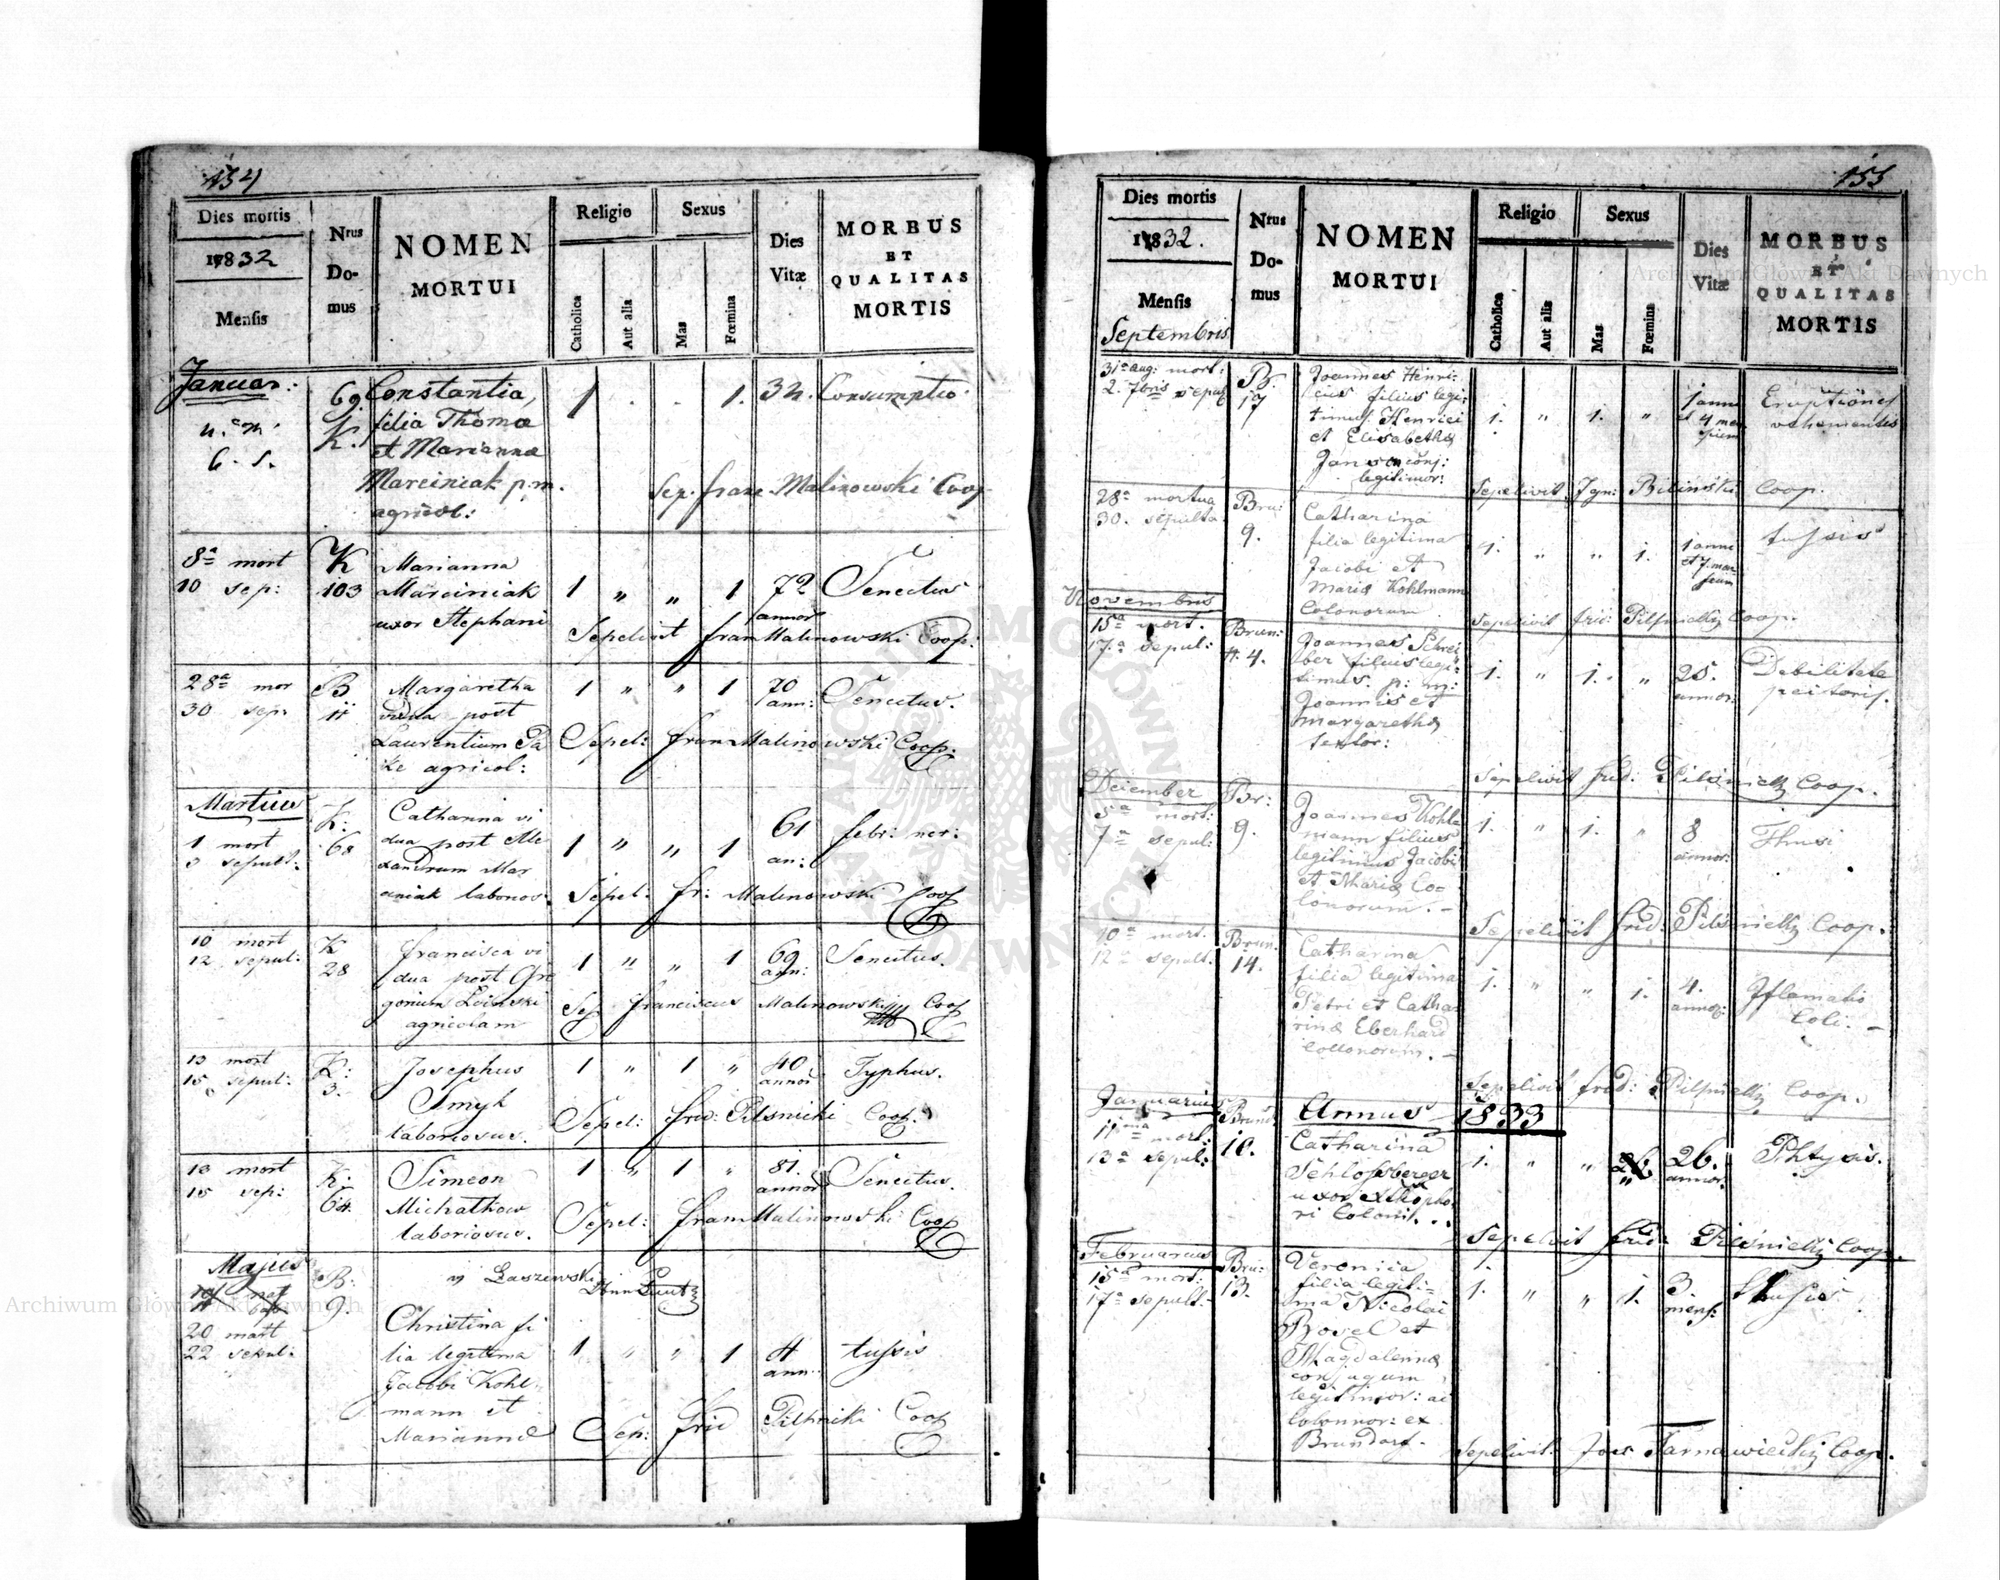 154
Dies mortis
1832
Mensis
Nrus Do-mus
NOMEN MORTUI
Religio
Catholica
Aut alia
Sexus
Mas
Fœmina
Dies Vitæ
MORBUS ET QUALITAS MORTIS
Januar:
6. s.
69.
K.
Constantia
filia Thomæ
et Mariannæ
Marciniak p. m.
agricol:
1 . . 1. 32. Consumptio
Sep. franc. Malinowski Coop
8a mort
10 sep:
K
103
Marianna
Marciniak
uxor Stephani
1 " " 1 72 annor Senectus
Sepelivit fran Malinowski Coop:
28a mor
30 sep:
B
11
Margaretha
vidua post
Laurentium Pa
ke agricol:
1 " " 1 70 ann: Senectus.
Sepel: fran Malinowski Coop.
Martius
1 mort
3 sepult:
K:
68
Catharina vi
dua post Ale
xandrum Mar
aniak laborios.
1 " " 1 61 an: febr: ner:
Sepel: fr: Malinowski Coop
10 mort
12 sepul:
K
28
francisca vi
dua post Gre
gorium
agricolam
1 " " 1 69 ann: Senectus.
Sep franciscus Malinowski Coop
13 mort
15 sepul:
K:
3.
Josephus
Smyk
laboriosus.
1 " 1 " 40 annor Typhus.
Sepel: frid: Pilsnicki Coop:
13 mort
15 sep:
K:
64
Simeon
Michatkow
laboriosus.
1 " 1 " 81. annor Senectus.
Sepel: fram Malinowski Coop
Majus
20 mort
22 sepul:
B:
9.
Laszewski
Christina fi
lia legitima
Jacobi Kohl
mann et
Marianne
1 " " 1 4 ann: tussis
Sep: frid Pilsnicki Coop
155
Dies mortis
1832.
Mensis
Septembris
Nrus Do-mus
NOMEN MORTUI
Religio
Catholica
Aut alia
Sexus
Mas
Fœmina
Dies Vitæ
MORBUS ET QUALITAS MORTIS
31a aug: mort:
2. 7bris sepul
B.
17
Joannes Henri-
cus filius legi
timus Henrici
et Elisabethæ
Janson conj:
legitimor:
1. " 1. " 1 anni et 4 men sium Eruptiones vehementes
Sepelivit Ign: Bilinski Coop.
28a mortua
30. sepulta
Bru:
9.
Catharina
filia legitima
Jacobi et
Mariæ Kohlmann
Colonorum
1. " " 1. 1 anni et 7. men sium tussis
Sepelivit frid: Pilsnicky Coop.
Novembris
15a mort.
17.a sepul:
Brun:
4.
Joannes Schrei
ber filius legi-
timus. p: m:
Joannis et
Margarethæ
textor:
1. " 1. " 25. annor: Debilitate pectoris.
Sepelivit frid: Pilsnicky Coop.
December
5a mort:
7a sepul:
Br:
9.
Joannes Kohl
mann filius
legitimus Jacobi
et Mariæ Co-
lonorum. -
1. " 1. " 8 annor: Thusi
Sepelivit frid: Pilsnicky Coop.
10a mort.
12a sepult.
Brun.
14.
Catharina
filia legitima
Petri et Catha
rinæ Eberhard
Collonorum. -
1. " " 1. 4. annor: Iflematio Coli. -
Sepelivit frid: Pilsnicky Coop.
Annus 1833
Januarius
11ma mort:
13a sepul:
Brund:
10.
Catharina
Schlossberger
uxor
ri Coloni. . .
1. " " 26. annor: Phtysis.
Sepelivit frid: Pilsnicky Coop.
Februarius
15a mort:
17a sepult.-
Bru:
13.
Veronica
filia legiti-
ma Nicolai
Bosel et
Magdalenæ
conjugum
legitimor: ac
Colonnor: ex
Brundorf.
1. " " 1. 3 mens:
Sepelivit. Joes Tarnawiecky Coop.
ARCHIWUM GŁÓWNE AKT DAWNYCH
Archiwum Główne Akt Dawnych
Archiwum Główne Akt Dawnych